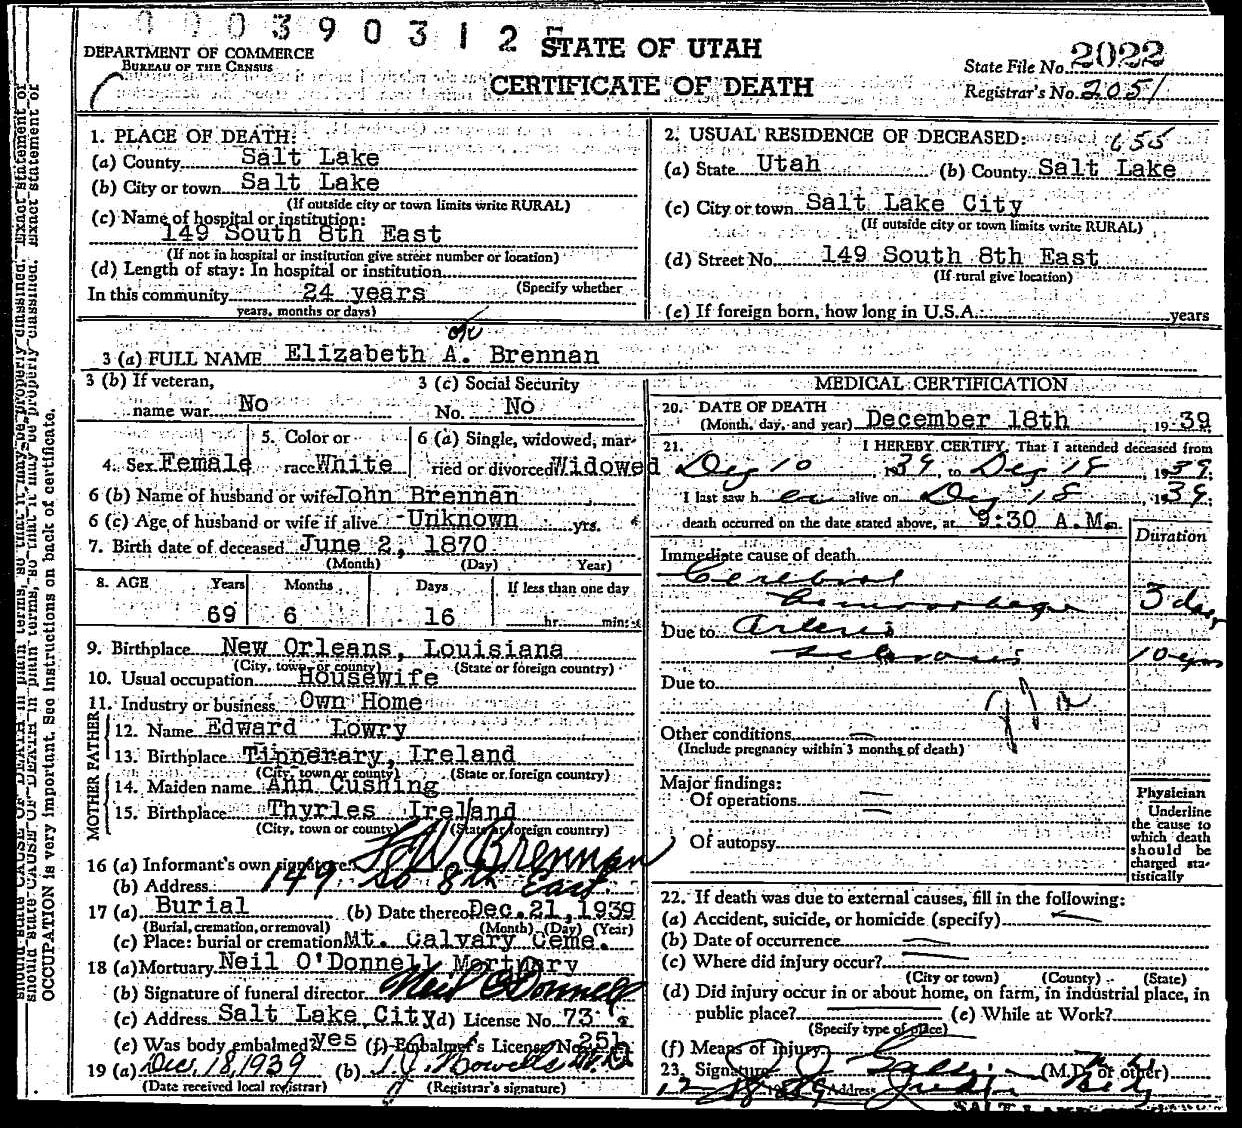 0 0 0 3 9 0 3 1 2
STATE OF UTAH
CERTIFICATE OF DEATH
DEPARTMENT OF COMMERCE
BUREAU OF THE CENSUS
State File No. 2022
Registrar's No. 2051
1. PLACE OF DEATH:
(a) County Salt Lake
(b) City or town Salt Lake
(If outside city or town limits write RURAL)
(c) Name of hospital or institution:
149 South 8th East
(If not in hospital or institution give street number or location)
(d) Length of stay: In hospital or institution
(Specify whether
In this community 24 years
years, months or days)
2. USUAL RESIDENCE OF DECEASED: 655
(a) State Utah (b) County Salt Lake
(c) City or town Salt Lake City
(If outside city or town limits write RURAL)
(d) Street No. 149 South 8th East
(If rural give location)
(e) If foreign born, how long in U.S.A. years
3 (a) FULL NAME Elizabeth A. Brennan
3 (b) If veteran,
name war No
3 (c) Social Security
No. No
4. Sex Female
5. Color or
race White
6 (a) Single, widowed, mar-
ried or divorced Widowed
6 (b) Name of husband or wife John Brennan
6 (c) Age of husband or wife if alive - Unknown yrs.
7. Birth date of deceased June 2, 1870
(Month) (Day) Year)
8. AGE Years Months Days If less than one day
69 6 16 hr. min.
9. Birthplace New Orleans, Louisiana
(City, town or county) (State or foreign country)
10. Usual occupation Housewife
11. Industry or business Own Home
FATHER
12. Name Edward Lowry
13. Birthplace Tipperary, Ireland
(City, town or county) (State or foreign country)
MOTHER
14. Maiden name Ann Cushing
15. Birthplace Thyrles Ireland
(City, town or county) (State or foreign country)
16 (a) Informant's own signature Brennan
(b) Address 149 So 8th East
17 (a) Burial (b) Date thereof Dec. 21, 1939
(Burial, cremation, or removal) (Month) (Day) (Year)
(c) Place: burial or cremation Mt. Calvary Ceme.
18 (a) Mortuary Neil O'Donnell Mortuary
(b) Signature of funeral director Neil O'Donnell
(c) Address Salt Lake City (d) License No. 73
(e) Was body embalmed? yes (f) Embalmer's License No. 251
19 (a) Dec. 18, 1939 (b)
(Date received local registrar) (Registrar's signature)
MEDICAL CERTIFICATION
20. DATE OF DEATH
(Month, day, and year) December 18th, 1939
21. I HEREBY CERTIFY, That I attended deceased from
Dec 10, 1939 to Dec 18, 1939.
I last saw her alive on Dec 18, 1939;
death occurred on the date stated above, at 9:30 A.M.
Duration
Immediate cause of death
Cerebral
hemorrhage 3 days
Due to Arterio
sclerosis 10 yrs
Due to
Other conditions
(Include pregnancy within 3 months of death)
Major findings:
Of operations
Of autopsy
Physician
Underline
the cause to
which death
should be
charged sta-
tistically
22. If death was due to external causes, fill in the following:
(a) Accident, suicide, or homicide (specify)
(b) Date of occurrence
(c) Where did injury occur?
(City or town) (County) (State)
(d) Did injury occur in or about home, on farm, in industrial place, in
public place? (e) While at Work?
(Specify type of place)
(f) Means of injury
23. Signature (M.D. or other)
12 18 1939 Address
should state CAUSE OF DEATH in plain terms, so that it may be properly classified. Exact statement of
OCCUPATION is very important. See instructions on back of certificate.